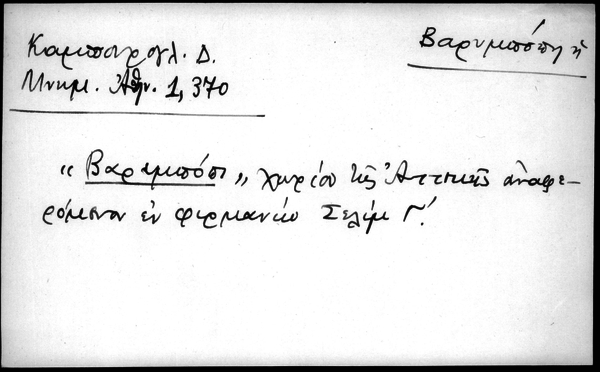 Καμπούρογλ. Δ.
Μνημ. Ἀθην. 1, 370
Βαρυμπόπη ἡ
"Βαρυμπόπι„ χωρίον τῆς Ἀττικῆς ἀναφε-
ρόμενον ἐν φιρμανίῳ Σελίμ Γ'.